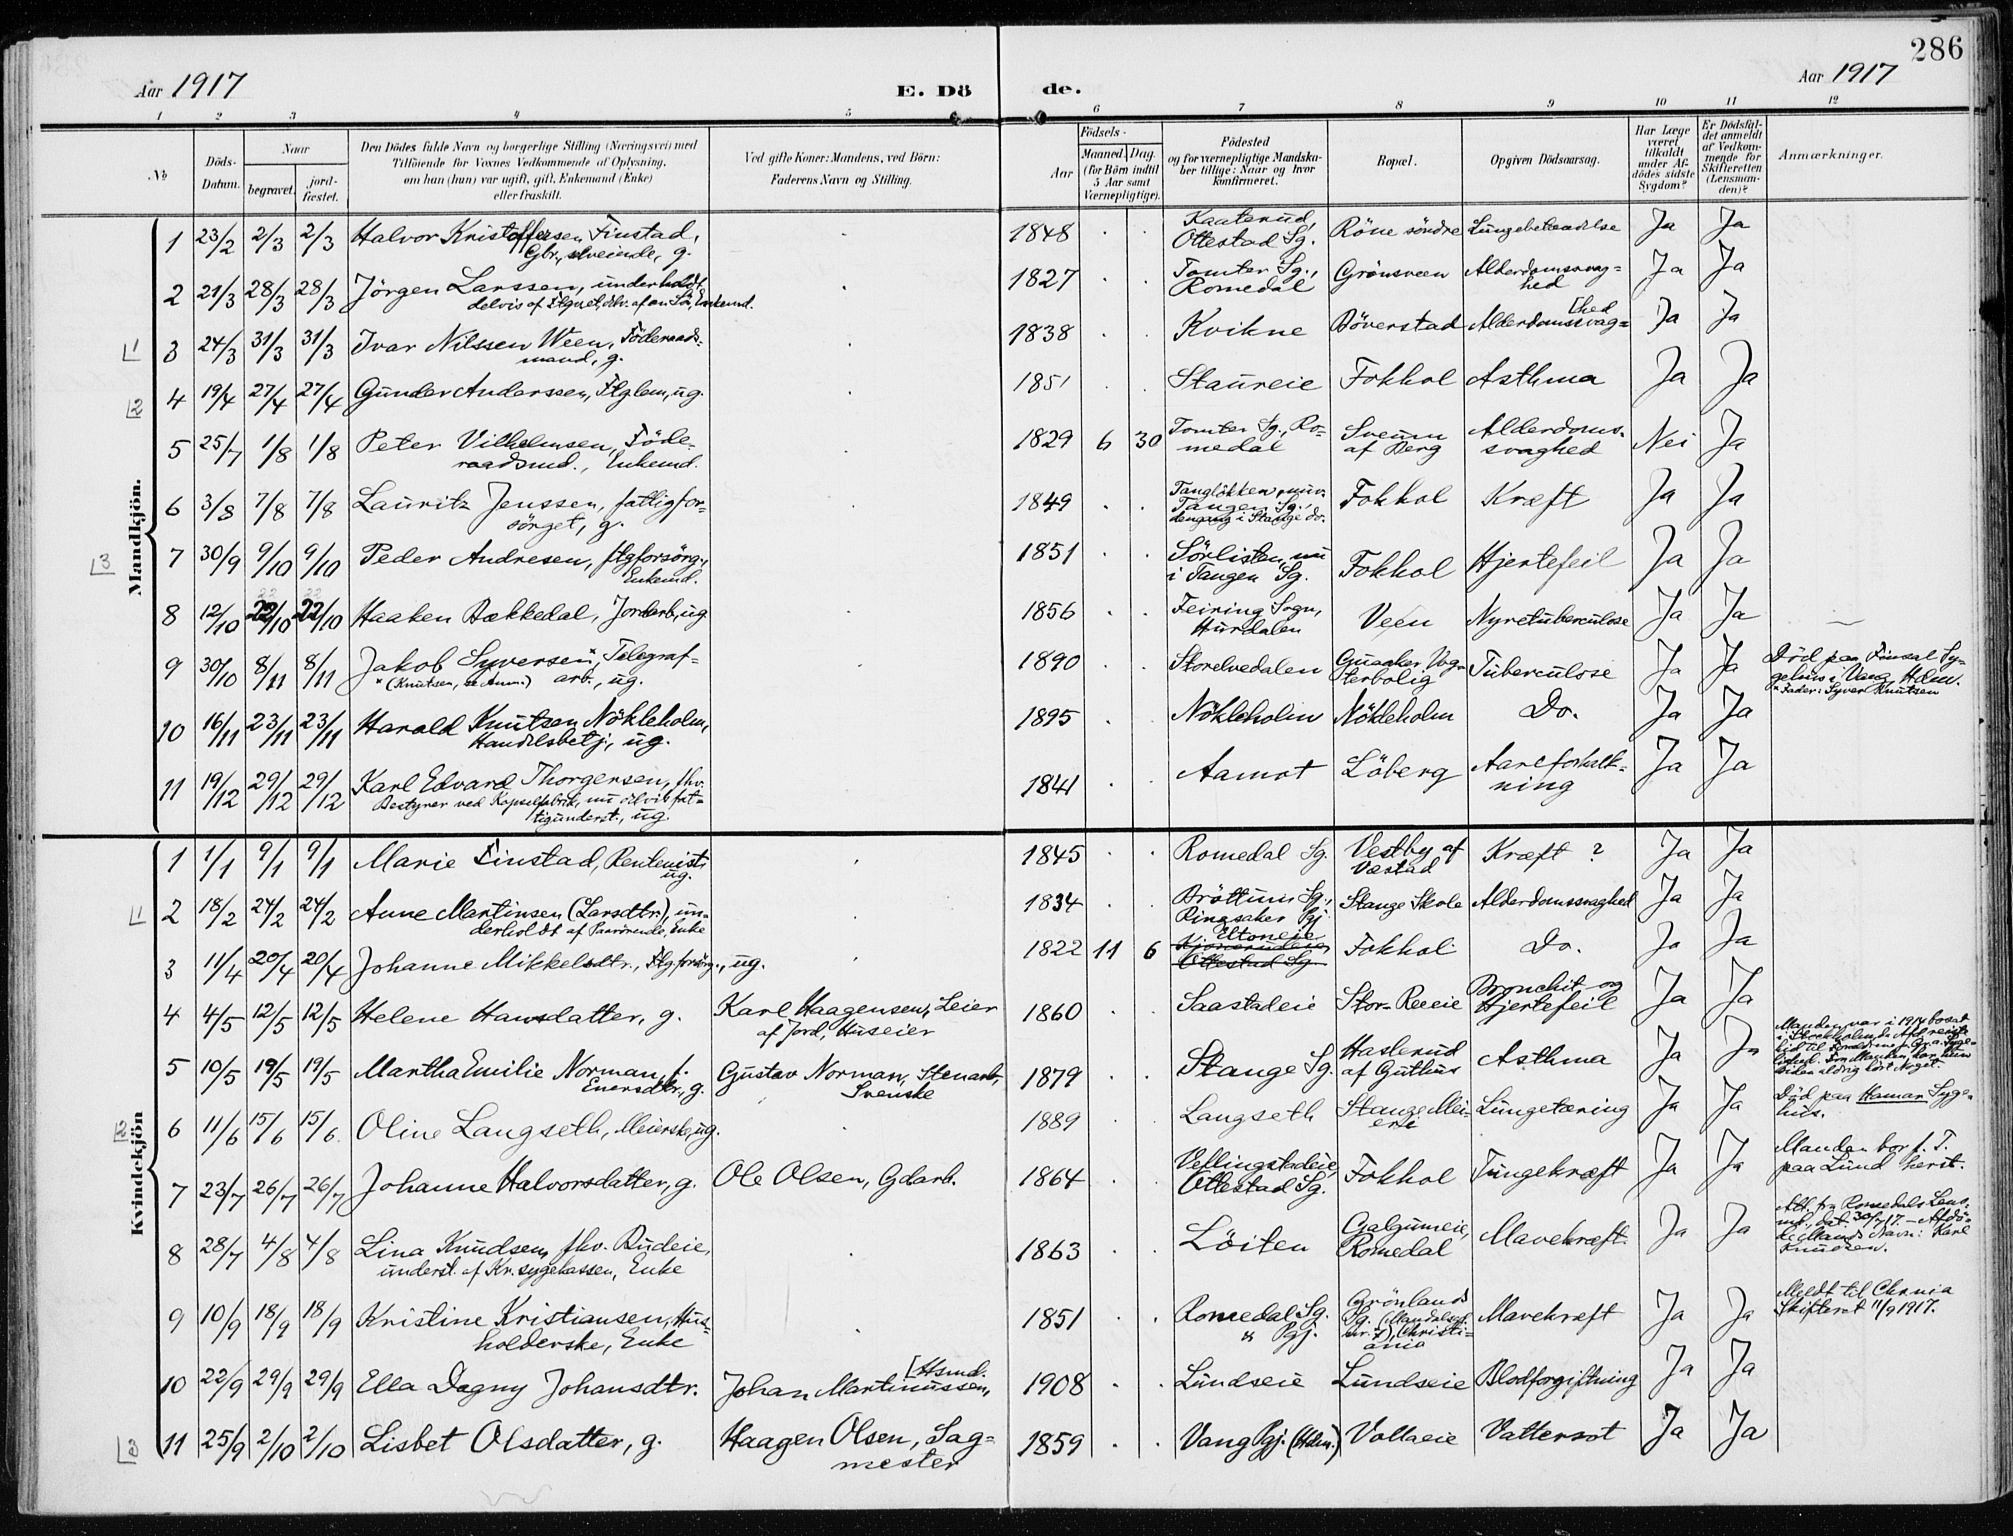 286
Aar 1917
E. Dö de.
Aar 1917
1 2 3 4 5 6 7 8 9 10 11 12
No
Döds-Datum.
Naar
begravet.
jord-fæstet.
Den Dödes fulde Navn og borgerlige Stilling (Næringsvei) med
Tilföiende for Voxnes Vedkommende af Oplysning,
om han (hun) var ugift, gift, Enkemand (Enke)
eller fraskilt.
Ved gifte Koner: Mandens, ved Börn:
Faderens Navn og Stilling.
Födsels-
Aar
Maaned. Dag.
(for Börn indtil
5 Aar samt
Værnepligtige).
Födested
og for værnepligtige Mandska-
ber tillige: Naar og hvor
konfirmeret.
Bopæl.
Opgiven Dödsaarsag.
Har Læge
været
tilkaldt
under Af-
dödes sidste
Sygdom?
Er Dödsfal-
det anmeldt
af Vedkom-
mende for
Skifteretten
(Lensman-
den)?
Anmærkninger.
Mandkjön.
1 23/2 2/3 2/3 Halvor Kristoffersen Finstad, Gbr., selveiende, g. 1848 Kaaterud, Ottestad Sg. Röne söndre Lungebetændelse Ja Ja
2 21/3 28/3 28/3 Jörgen Larssen, underholdt delvis af Ftgv. et. dlv. af en Sön, Enkemd. 1827 Tomter Sg., Romedal Grönsveen Alderdomssvag=hed Ja Ja
3 24/3 31/3 31/3 Ivar Nilssen Ween, Föderaads-mand, g. 1838 Kvikne Böverstad Alderdomssvag=[hed Ja Ja
4 19/4 27/4 27/4 Gunder Anderssen, Ftglem, ug. 1851 Staureie Fokhol Asthma Ja Ja
5 25/7 1/8 1/8 Peter Vilhelmsen, Föde-raadsmd., Enkemd. 1829 6 30 Tomter Sg., Ro-medal Sveum af Berg Alderdoms-svaghed Nei Ja
6 3/8 7/8 7/8 Lauritz Jenssen, fattigfor-sörget, g. 1849 Tanglökken, nuv. Tangen Sg., dengang i Stange do. Fokhol Kræft Ja Ja
7 30/9 9/10 9/10 Peder Andresen, ftgforsörg., Enkemd. 1851 Sörlisten, nu i Tangen Sg. Fokhol Hjertefeil Ja Ja
8 12/10 22/10 22/10 Haaken Bækkedal, Jordarb., ug. 1856 Feiring Sogn, Hurdalen Veen Nyretuberculose Ja Ja
9 30/10 8/11 8/11 Jakob Syversen*, Telegraf-arb., ug. * (Knutsen, se Anm.) 1890 Storelvedalen Guaaker Vog-terbolig Tuberculose Ja Ja Död paa Finsal Sy-gehus i Vang, Hdm. * Fader: Syver Knutsen
10 16/11 23/11 23/11 Harald Knutsen Nökleholm, Handelsbetj., ug. 1895 Nökleholm Nökleholm Do. Ja Ja
11 19/12 29/12 29/12 Karl Edvard Thorgersen, fhv. Bestyrer ved Kapselfabrik, nu delvis fat-tigunderst., ug. 1841 Aamot Löberg Aareforkalk-ning Ja Ja
Kvindekjön
1 1/1 9/1 9/1 Marie Finstad, Rentenist, ug. 1845 Romedal Sg. Vestby af Vestad Kræft ? Ja Ja
2 18/2 24/2 24/2 Anne Martinsen (Larsdtr.), un-derholdt af Paarörende, Enke 1834 Bröttum Sg., Ringsaker Pgj. Stange Skole Alderdomssvaghed Ja Ja
3 11/4 20/4 20/4 Johanne Mikkelsdtr., Ftg.forsörg., ug. 1822 11 6 Eltoneie Ottestad Sg. Fokhol Do. Ja Ja
4 4/5 12/5 12/5 Helene Hansdatter, g. Karl Haagensen, Leier af Jord, Huseier 1860 Saastadeie Stor-Reeie Bronchit og Hjertefeil Ja Ja
5 10/5 19/5 19/5 Martha Emilie Norman, f. Enersdtr., g. Gustav Norman, Stenarb., Svenske 1879 Stange Sg. Haslerud af Guthus Asthma Ja Ja Manden var i 1914 bosat i Stockholm, da Afd. reiste hid til Forældrene p. Gr. a. Syge-lighed. Fra Manden har hun siden aldrig hört Noget.
6 11/6 15/6 15/6 Oline Langseth, Meierske, ug. 1889 Langseth Stange Mei-eri Lungetæring Ja Ja Död paa Hamar Syge-hus.
7 23/7 26/7 26/7 Johanne Halvorsdatter, g. Ole Olsen, Gdarb. 1864 Vellingstadeie, Ottestad Sg. Fokhol Tungekræft Ja Ja Manden bor f. T. paa Lund herst.
8 28/7 4/8 4/8 Lina Knudsen, fhv. Rudeie, underst. af Kr. sygekassen, Enke 1863 Löiten Galgumeie, Romedal Mavekræft Ja Ja Att. fra Romedals Lens-md., dat. 30/7 17. – Afdö-de Mands Navn: Karl Knudsen.
9 10/9 18/9 18/9 Kristine Kristiansen, Hus-holderske, Enke 1851 Romedal Sg. & Pgj. Grönlands Sg. (Mandalsgt. nr. 7), Christi-ania Mavekræft Ja Ja Meldt til Chrania Skifteret 11/9 1917.
10 22/9 29/9 29/9 Ella Dagny Johansdtr. Johan Martinussen, [Hsmd. 1908 Lundseie Lundseie Blodforgiftning Ja Ja
11 25/9 2/10 2/10 Lisbet Olsdatter, g. Haagen Olsen, Sag-mester 1859 Vang Pgj. (Hdm.) Vollaeie Vattersot Ja Ja